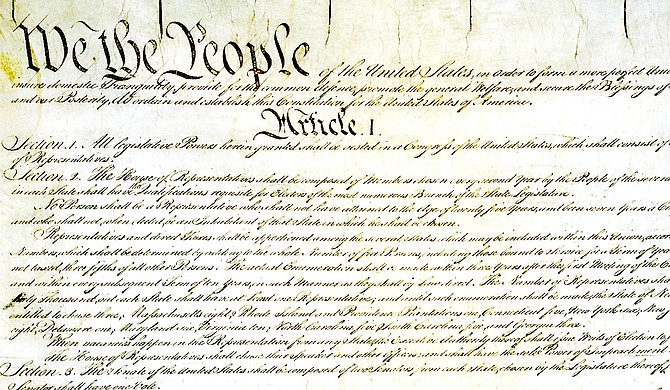 We the People of the United States, in Order to form a more perfect Union
insure domestic Tranquility, provide for the common defence, promote the general Welfare, and secure the Blessings of
and our Posterity, do ordain and establish this Constitution for the United States of America.
Article. I.
Section. 1. All legislative Powers herein granted shall be vested in a Congress of the United States, which shall consist of
of Representatives.
Section. 2. The House of Representatives shall be composed of Members chosen every second Year by the People of the several
in each State shall have the Qualifications requisite for Electors of the most numerous Branch of the State Legislature.
No Person shall be a Representative who shall not have attained to the Age of twenty five Years, and been seven Years a Ci
and who shall not, when elected, be an Inhabitant of that State in which he shall be chosen.
Representatives and direct Taxes shall be apportioned among the several States which may be included within this Union, accor
Numbers, which shall be determined by adding to the whole Number of free Persons, including those bound to Service for a Term of Year
not taxed, three fifths of all other Persons. The actual Enumeration shall be made within three Years after the first Meeting of the Co
and within every subsequent Term of ten Years, in such Manner as they shall by Law direct. The Number of Representatives sha
thirty Thousand, but each State shall have at Least one Representative; and until such enumeration shall be made, the State of
entitled to chuse three, Massachusetts eight, Rhode Island and Providence Plantations one, Connecticut five, New York six, New
eight, Delaware one, Maryland six, Virginia ten, North Carolina five, South Carolina five, and Georgia three.
When vacancies happen in the Representation from any State, the Executive Authority thereof shall issue Writs of Election to
The House of Representatives shall chuse their Speaker and other Officers; and shall have the sole Power of Impeachment.
Section. 3. The Senate of the United States shall be composed of two Senators from each State, chosen by the Legislature thereof
Senator shall have one Vote.